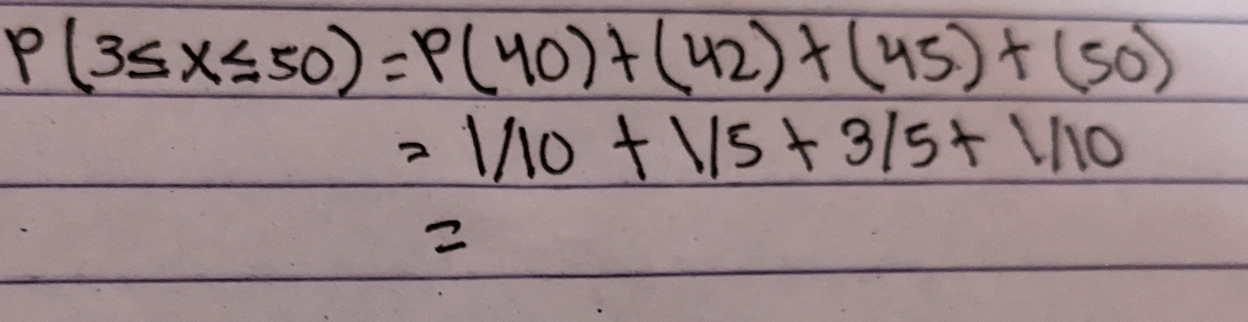 P(3≤x≤50)=P(40)+(42)+(45)+(50)
= 1/10 + 1/5 + 3/5 + 1/10
=